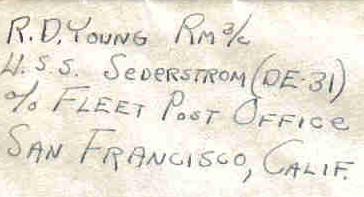 R.D. YOUNG RM 3/c
U.S.S. SEDERSTROM (DE-31)
c/o FLEET POST OFFICE
SAN FRANCISCO, CALIF.